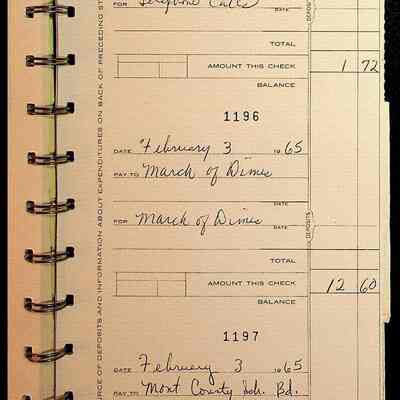 FOR Telephone Calls DATE
DEPOSITS
TOTAL
AMOUNT THIS CHECK 1 72
BALANCE
1196
DATE February 3 1965
PAY TO March of Dimes
DATE
FOR March of Dimes
DATE
DEPOSITS
TOTAL
AMOUNT THIS CHECK 12 60
BALANCE
1197
DATE February 3 1965
PAY TO Mont County Sch. Bd.
RCE OF DEPOSITS AND INFORMATION ABOUT EXPENDITURES ON BACK OF PRECEDING ST